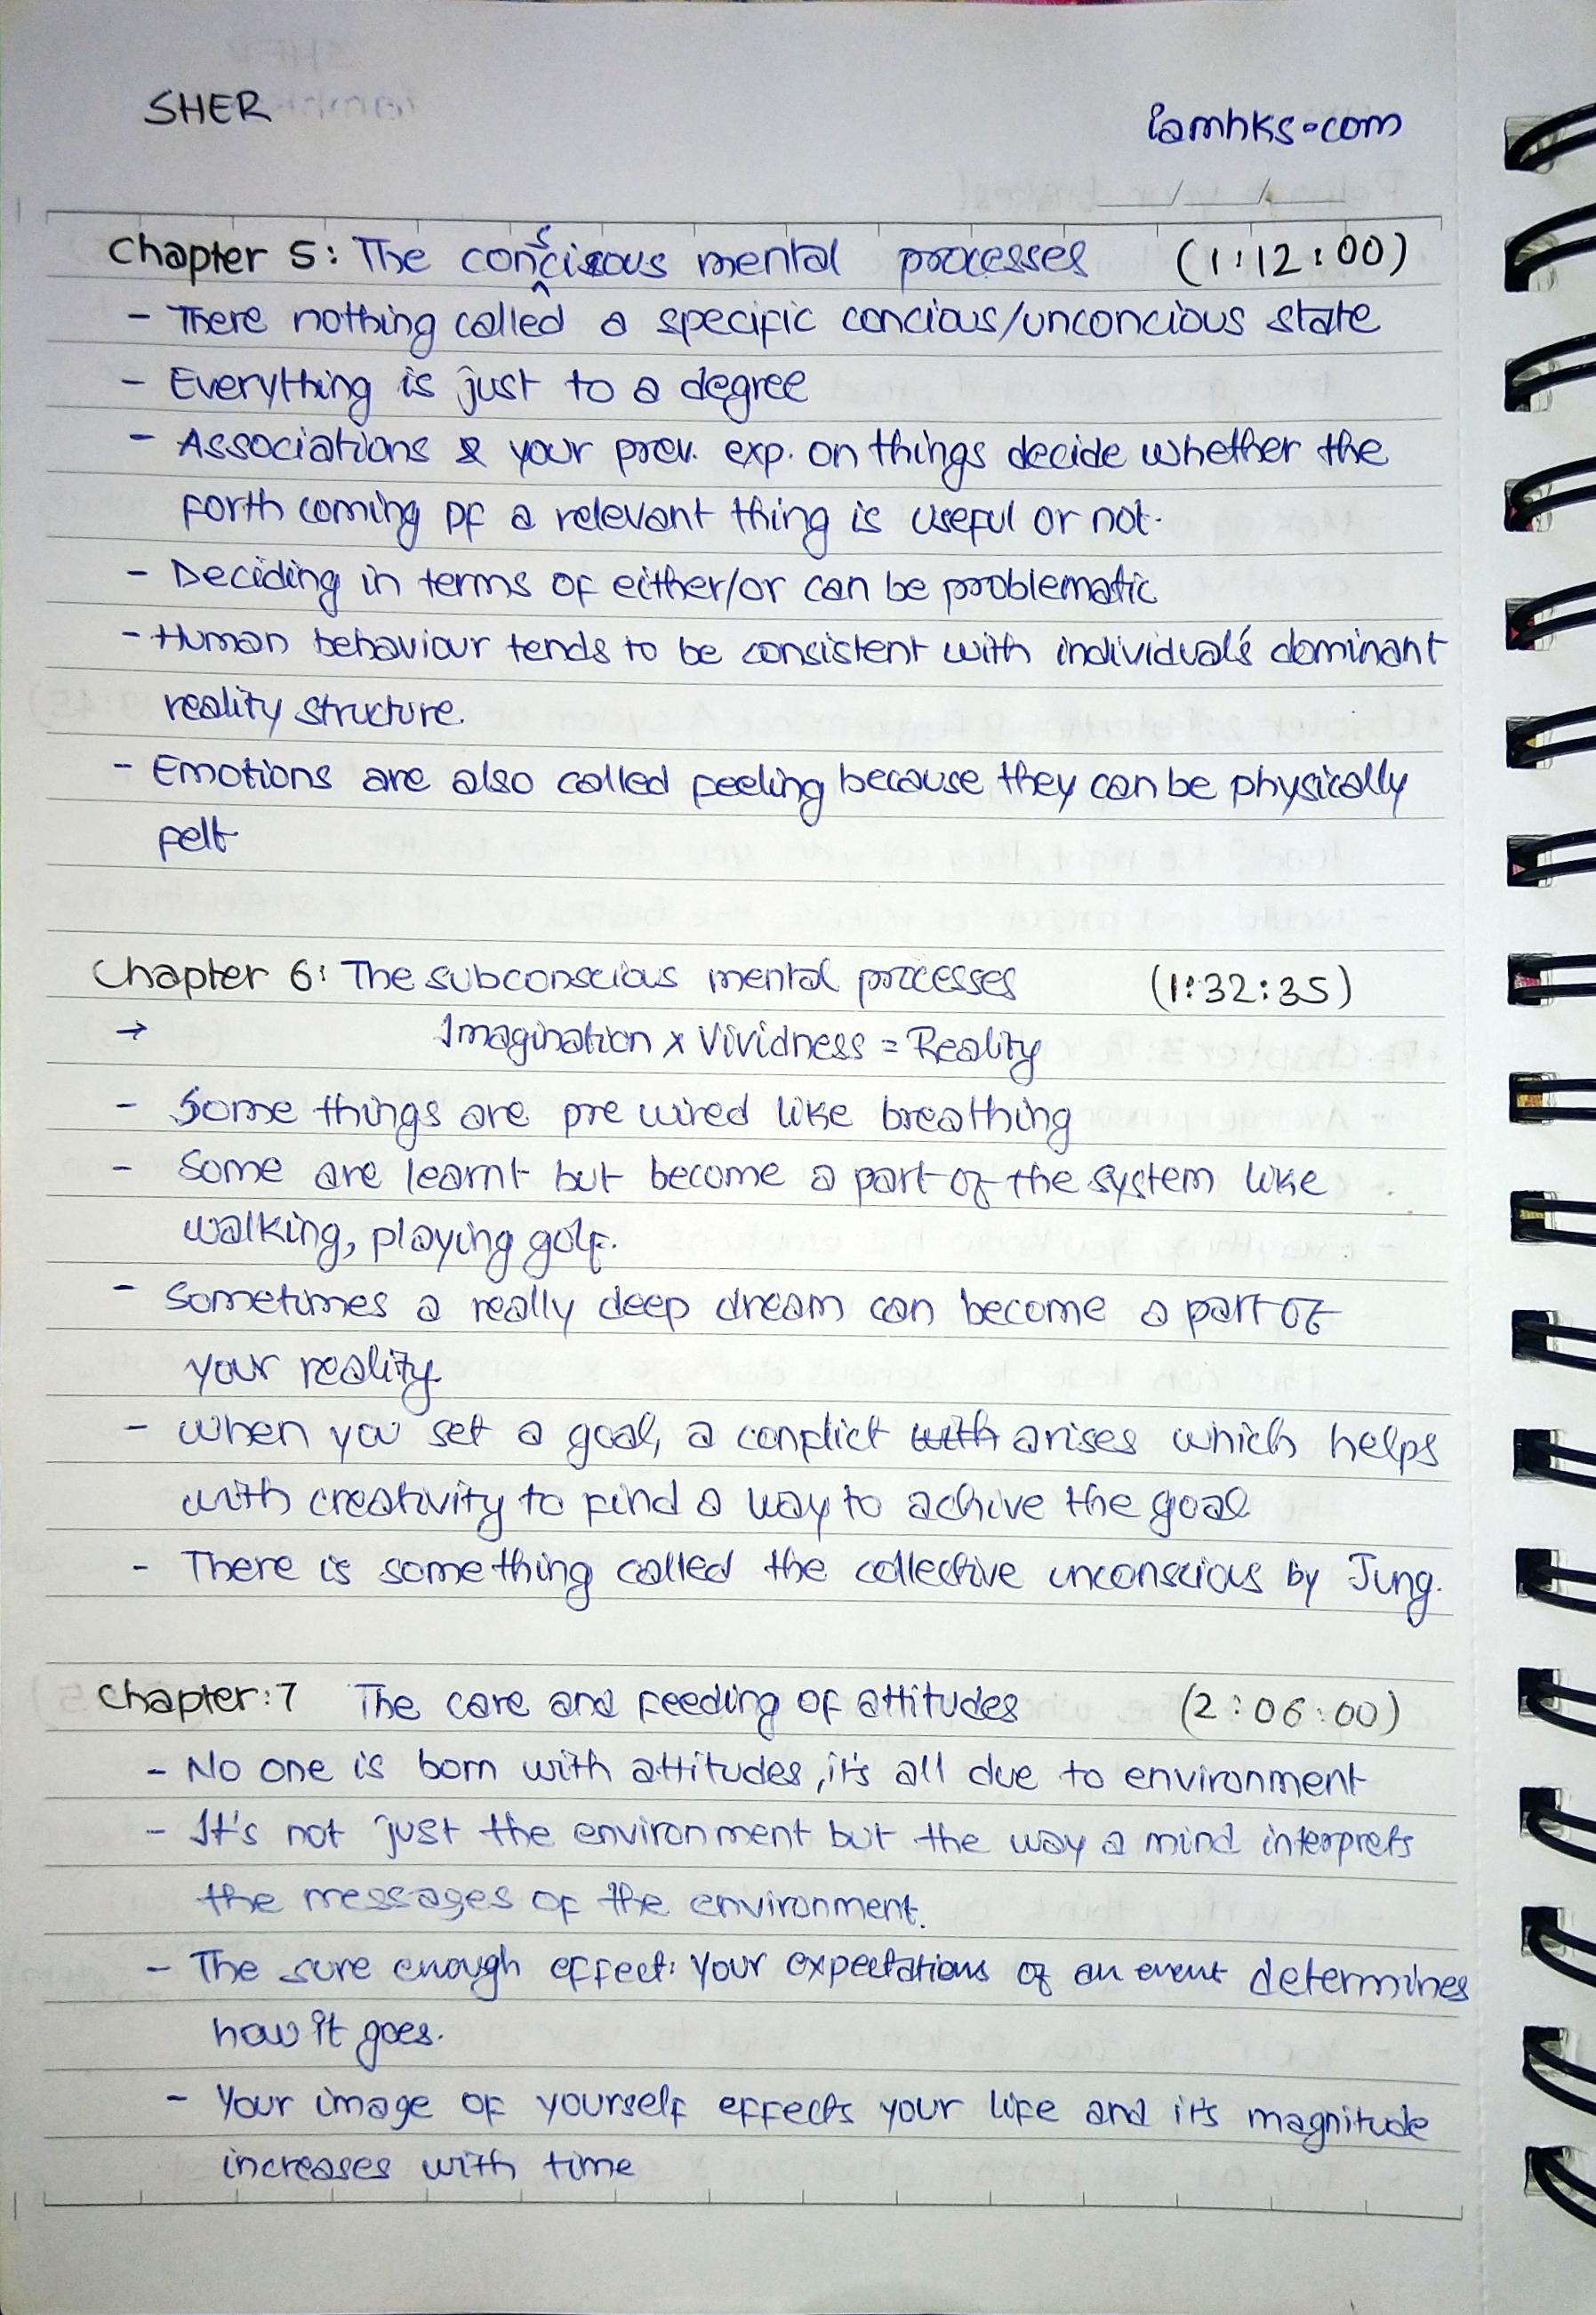 SHER
iamhks.com
Chapter 5: The conscious mental processes (1:12:00)
- There nothing called a specific concious/unconcious state
- Everything is just to a degree
- Associations & your prev. exp. on things decide whether the
forth coming of a relevant thing is useful or not.
- Deciding in terms of either/or can be problematic
- Human behaviour tends to be consistent with individual's dominant
reality structure.
- Emotions are also called feeling because they can be physically
felt
Chapter 6: The subconscious mental processes (1:32:35)
→ Imagination x Vividness = Reality
- Some things are pre wired like breathing
- Some are learnt but become a part of the system like
walking, playing golf.
- Sometimes a really deep dream can become a part of
your reality.
- When you set a goal, a conflict with arises which helps
with creativity to find a way to achive the goal
- There is something called the collective unconscious by Jung.
Chapter:7 The care and feeding of attitudes (2:06:00)
- No one is born with attitudes, it's all due to environment
- It's not just the environment but the way a mind interprets
the messages of the environment.
- The sure enough effect: Your expectations of an event determines
how it goes.
- Your image of yourself effects your life and it's magnitude
increases with time